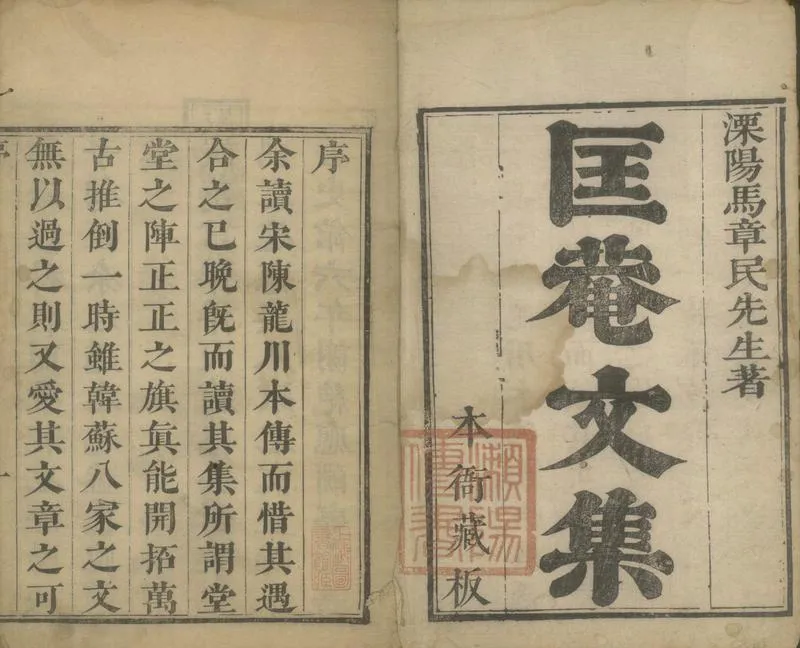 溧陽馬章民先生著
匡菴文集
本衙藏板
序
余讀宋陳龍川本傳而惜其遇
合之已晚旣而讀其集所謂堂
堂之陣正正之旗眞能開拓萬
古推倒一時雖韓蘇八家之文
無以過之則又愛其文章之可